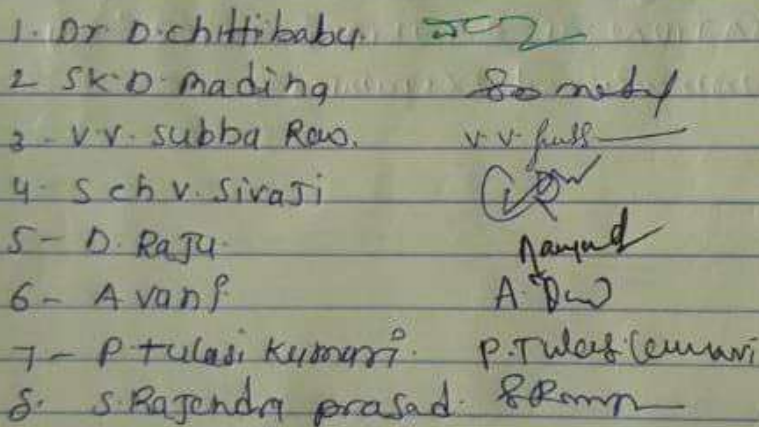 1. Dr D. chittibabu.
2 SK. D. Mading
3 - V.V. Subba Rao. V.V.
4. S ch v. Sivaji
5 - D. Raju.
6 - A vani A.
7 - P tulasi Kumari. P. Tulasi Kumari
8. S. Rajendra prasad.